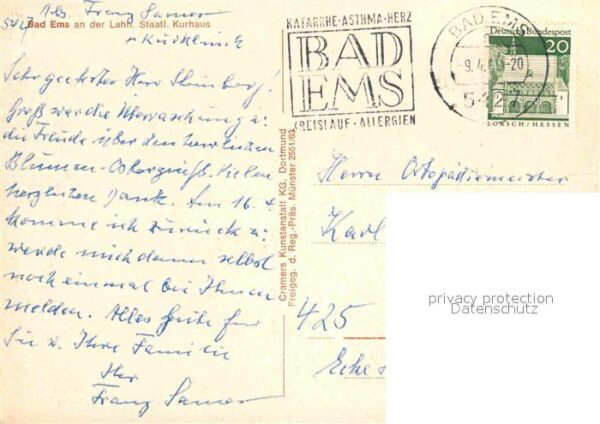 Abs. Franz Samer
5427
Bad Ems an der Lahn. Staatl. Kurhaus
Kurklinik
Sehr geehrter Herr Steinberg!
Groß war die Überraschung u.
die Freude über den herrlichen
Blumen-Ostergruß. Vielen
herzlichen Dank. Am 16.4.
komme ich zurück u.
werde mich dann selbst
noch einmal bei Ihnen
melden. Alles Gute für
Sie u. Ihre Familie
Ihr
Franz Samer
Cramers Kunstanstalt KG, Dortmund
Freigeg. d. Reg.-Präs. Münster 2551/63
KATARRHE·ASTHMA·HERZ
BAD
EMS
KREISLAUF·ALLERGIEN
BAD EMS
-9.4. -20
5427
Deutsche Bundespost
20
LORSCH/HESSEN
Herrn Ortopädiemeister
Karl
425
Ecke
privacy protection
Datenschutz